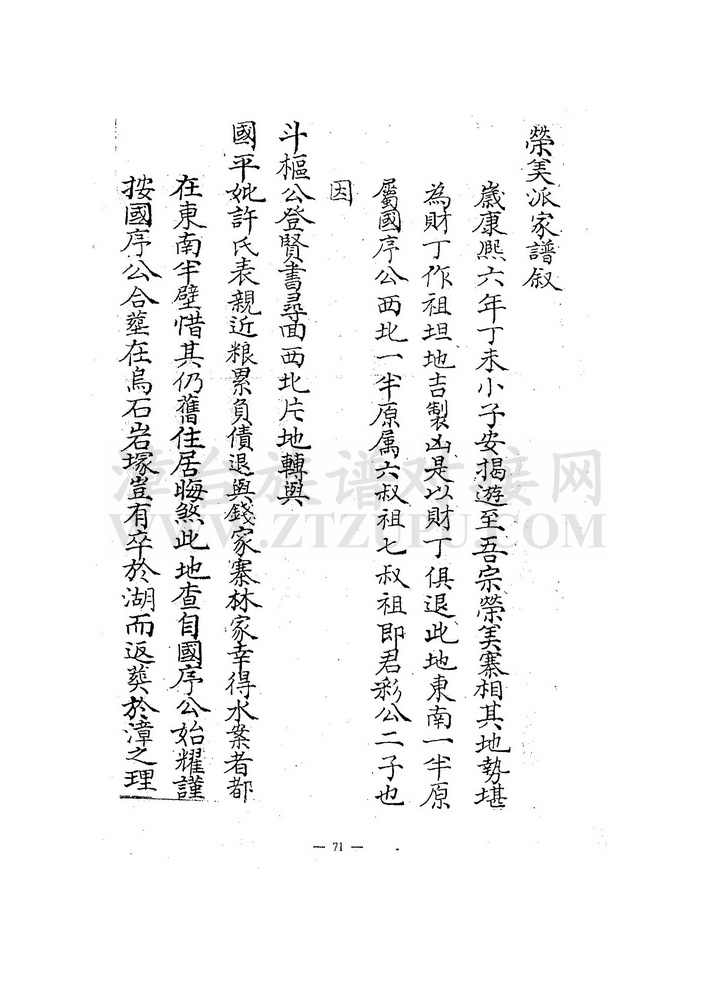 榮美派家譜叙
歲康熙六年丁未小子安揭遊至吾宗榮美寨相其地勢堪
為財丁作祖坦地吉製凶是以財丁俱退此地東南一半原
屬國序公西北一半原属六叔祖七叔祖即君彩公二子也
因
斗樞公登賢書尋面西北片地轉與
國平妣許氏表親近粮累負債退與錢家寨林家幸得水案者都
在東南半壁惜其仍舊住居晦煞此地查自國序公始耀謹
按國序公合塟在烏石岩塚豈有卒於湖而返葬於漳之理
漳台族谱对接网
WWW.ZTZUPU.COM
— 71 —